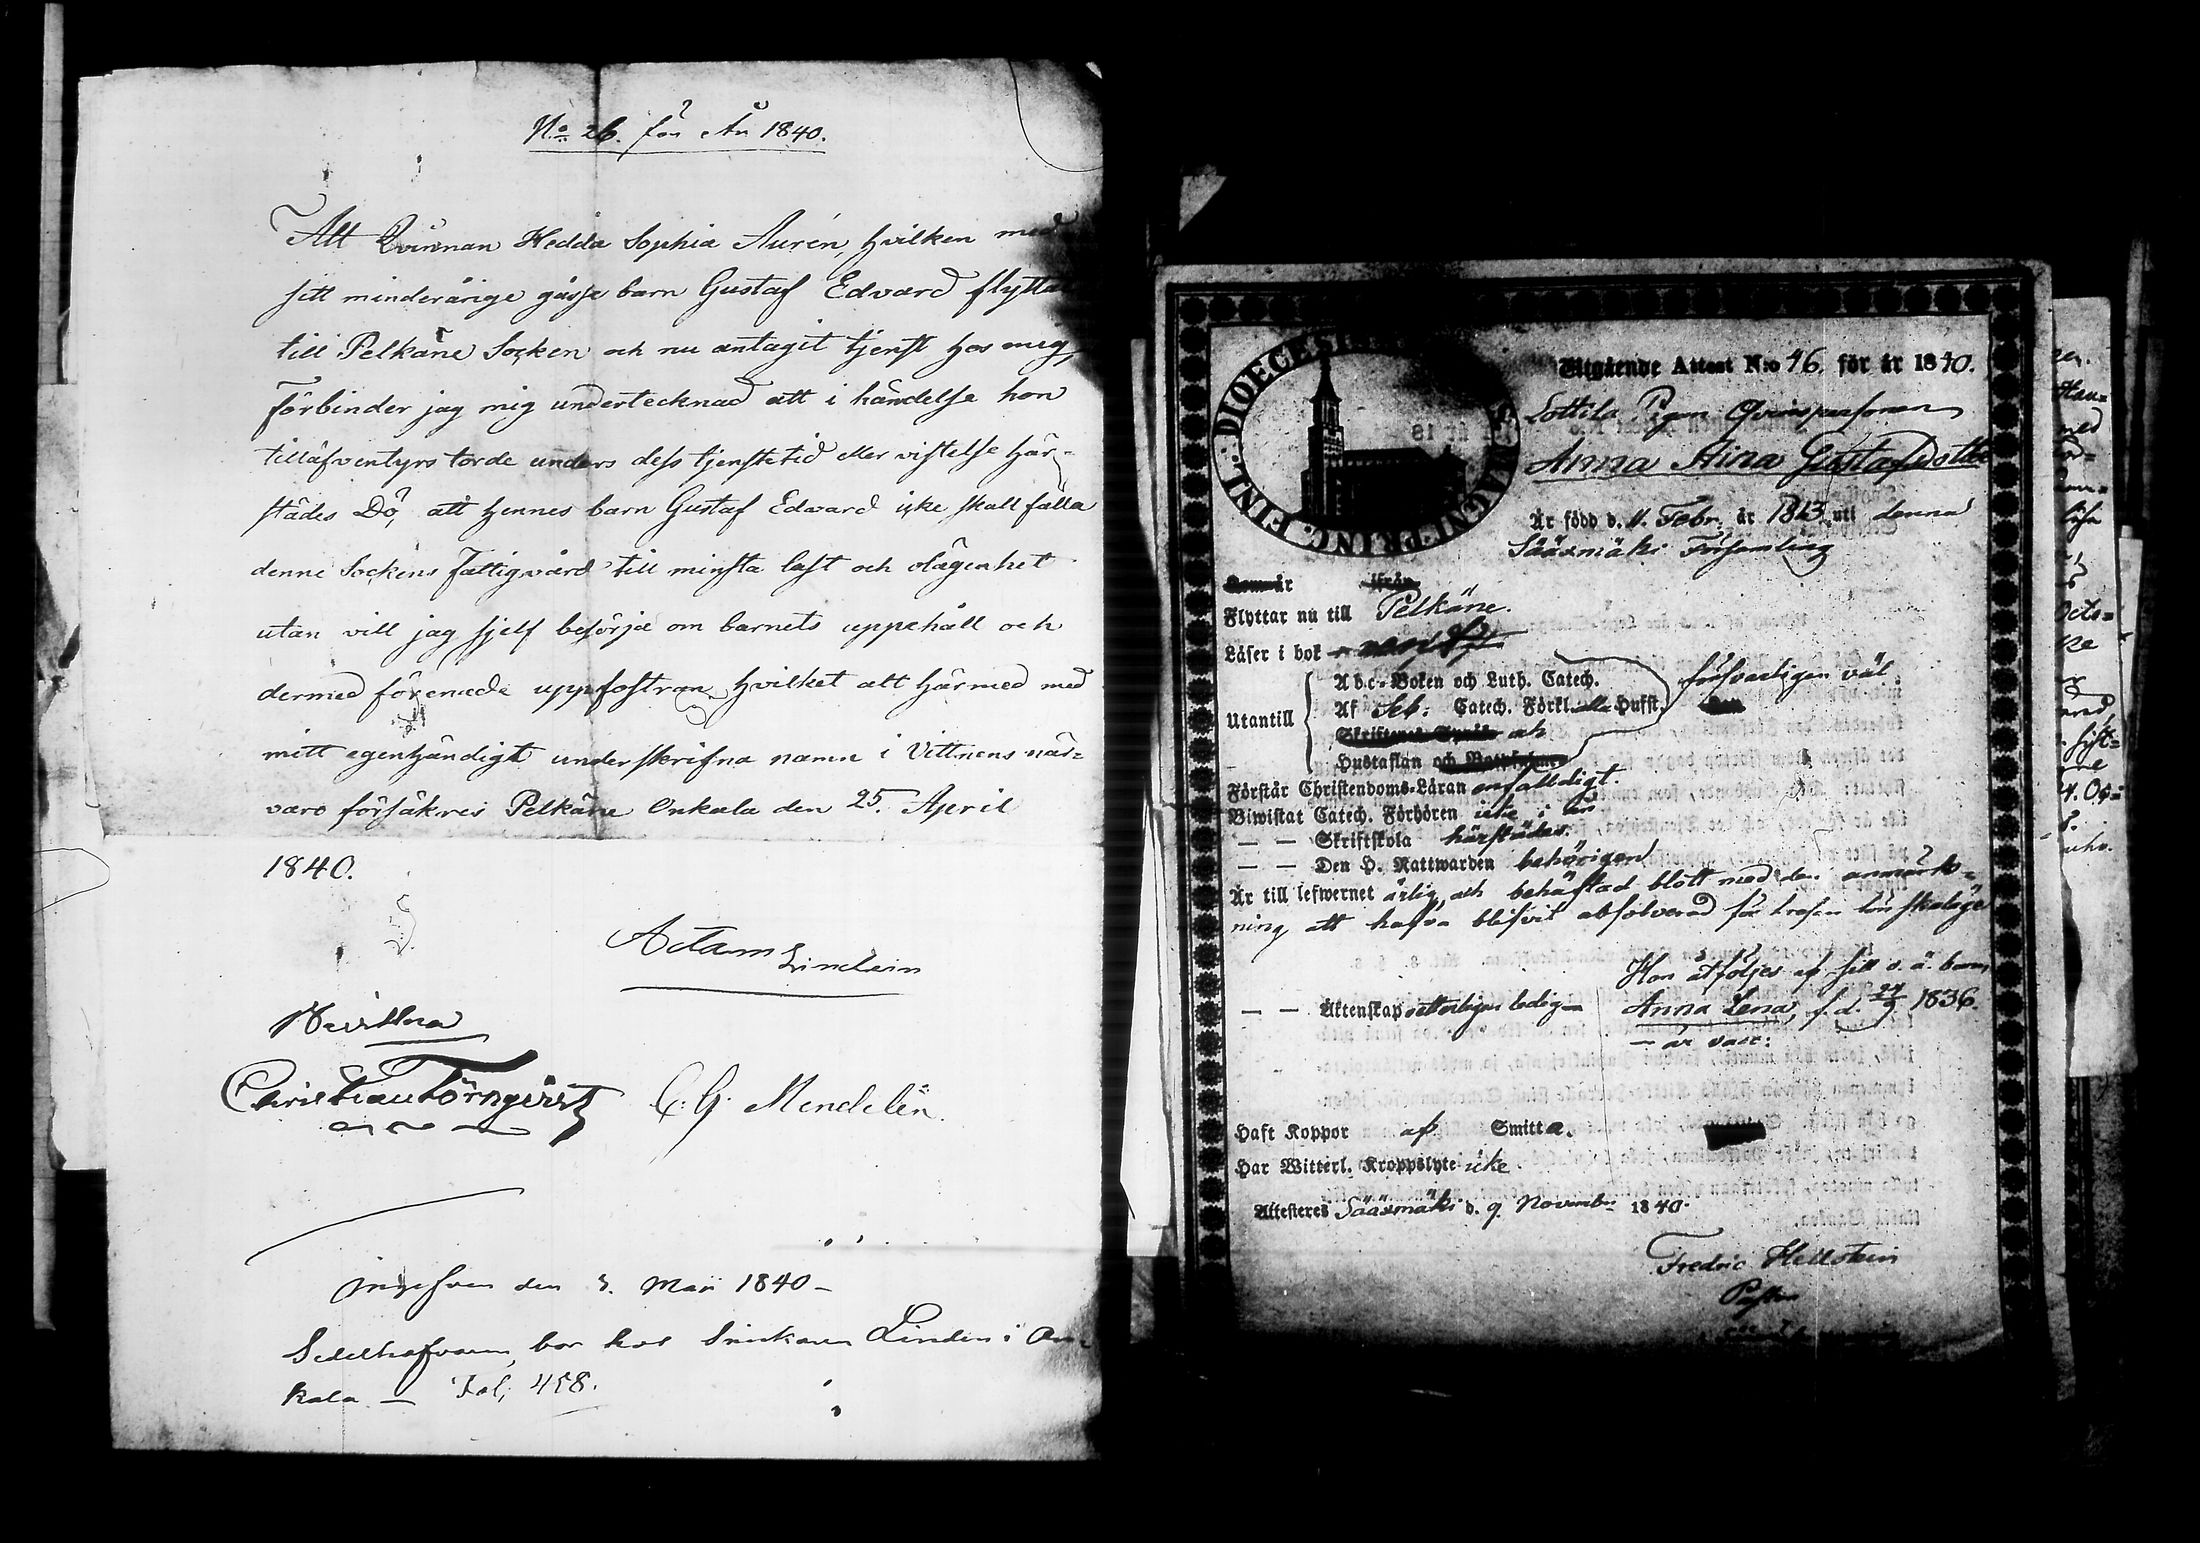 No 26. för År 1840.
Att Qvinnan Hedda Sophia Aurén, hvilken med
sitt minderårige gåsse barn Gustaf Edvard flyttat
till Pelkäne Socken och nu antagit tjenst hos mig,
förbinder jag mig undertecknad att i händelse hon
tilläfventyrs torde unders dess tjenstetid eller vistelse här-
städes Dö, att hennes barn Gustaf Edvard icke skall falla
denne Sockens Fattigvård till minsta last och olägenhet
utan vill jag sjelf besörja om barnets uppehåll och
dermed förenade uppfostran, hvilket att härmed med
mitt egenhändigt underskrifna namn i Vittnens när-
varo försäkres Pelkäne Onkala den 25. April
1840.
Adam Lindén
Bevittna
Christian Törnqvist C. G. Mendelin.
den 3. Maji 1840 –
Sedelhafvaren, bor hos Snickaren Linden i On-
kala – Fol. 458.
DIOECESIS MAGNI PRINC. FINL.
Utgående Attest N:o 46. för år 1840.
Lottila Pigan Qvinspersonen
Anna Aina Gustafsdotter
Är född d. 11. Febr. år 1813. uti denna
Sääxmäki Församling
Flyttar nu till Pelkäne.
Läser i bok
Utantill
Abc-Boken och Luth. Catech. försvarligen väl.
Af Seb: Catech. Förkl. Husst.
och
Hustaflan
Förstår Christendoms-Läran enfalldigt.
Biwistat Catech. Förhören icke i år
— — Skriftskola härstädes.
— — Den H. Nattwarden behörigen
Är till lefwernet ärlig, och behäftad blott med den anmärk-
ning att hafva blifvit absolverad för tvefen lönskaläge
Hon åtföljes af sitt o. ä. barn
— — Äktenskap ledig — Anna Lena, f. d. 24/9 1836.
— är vacc:
Haft Koppor af Smitta.
Har Witterl. Kroppslyte icke
Attesteres Sääxmäki d. 9 November 1840.
Fredric Hellstein
Pastor